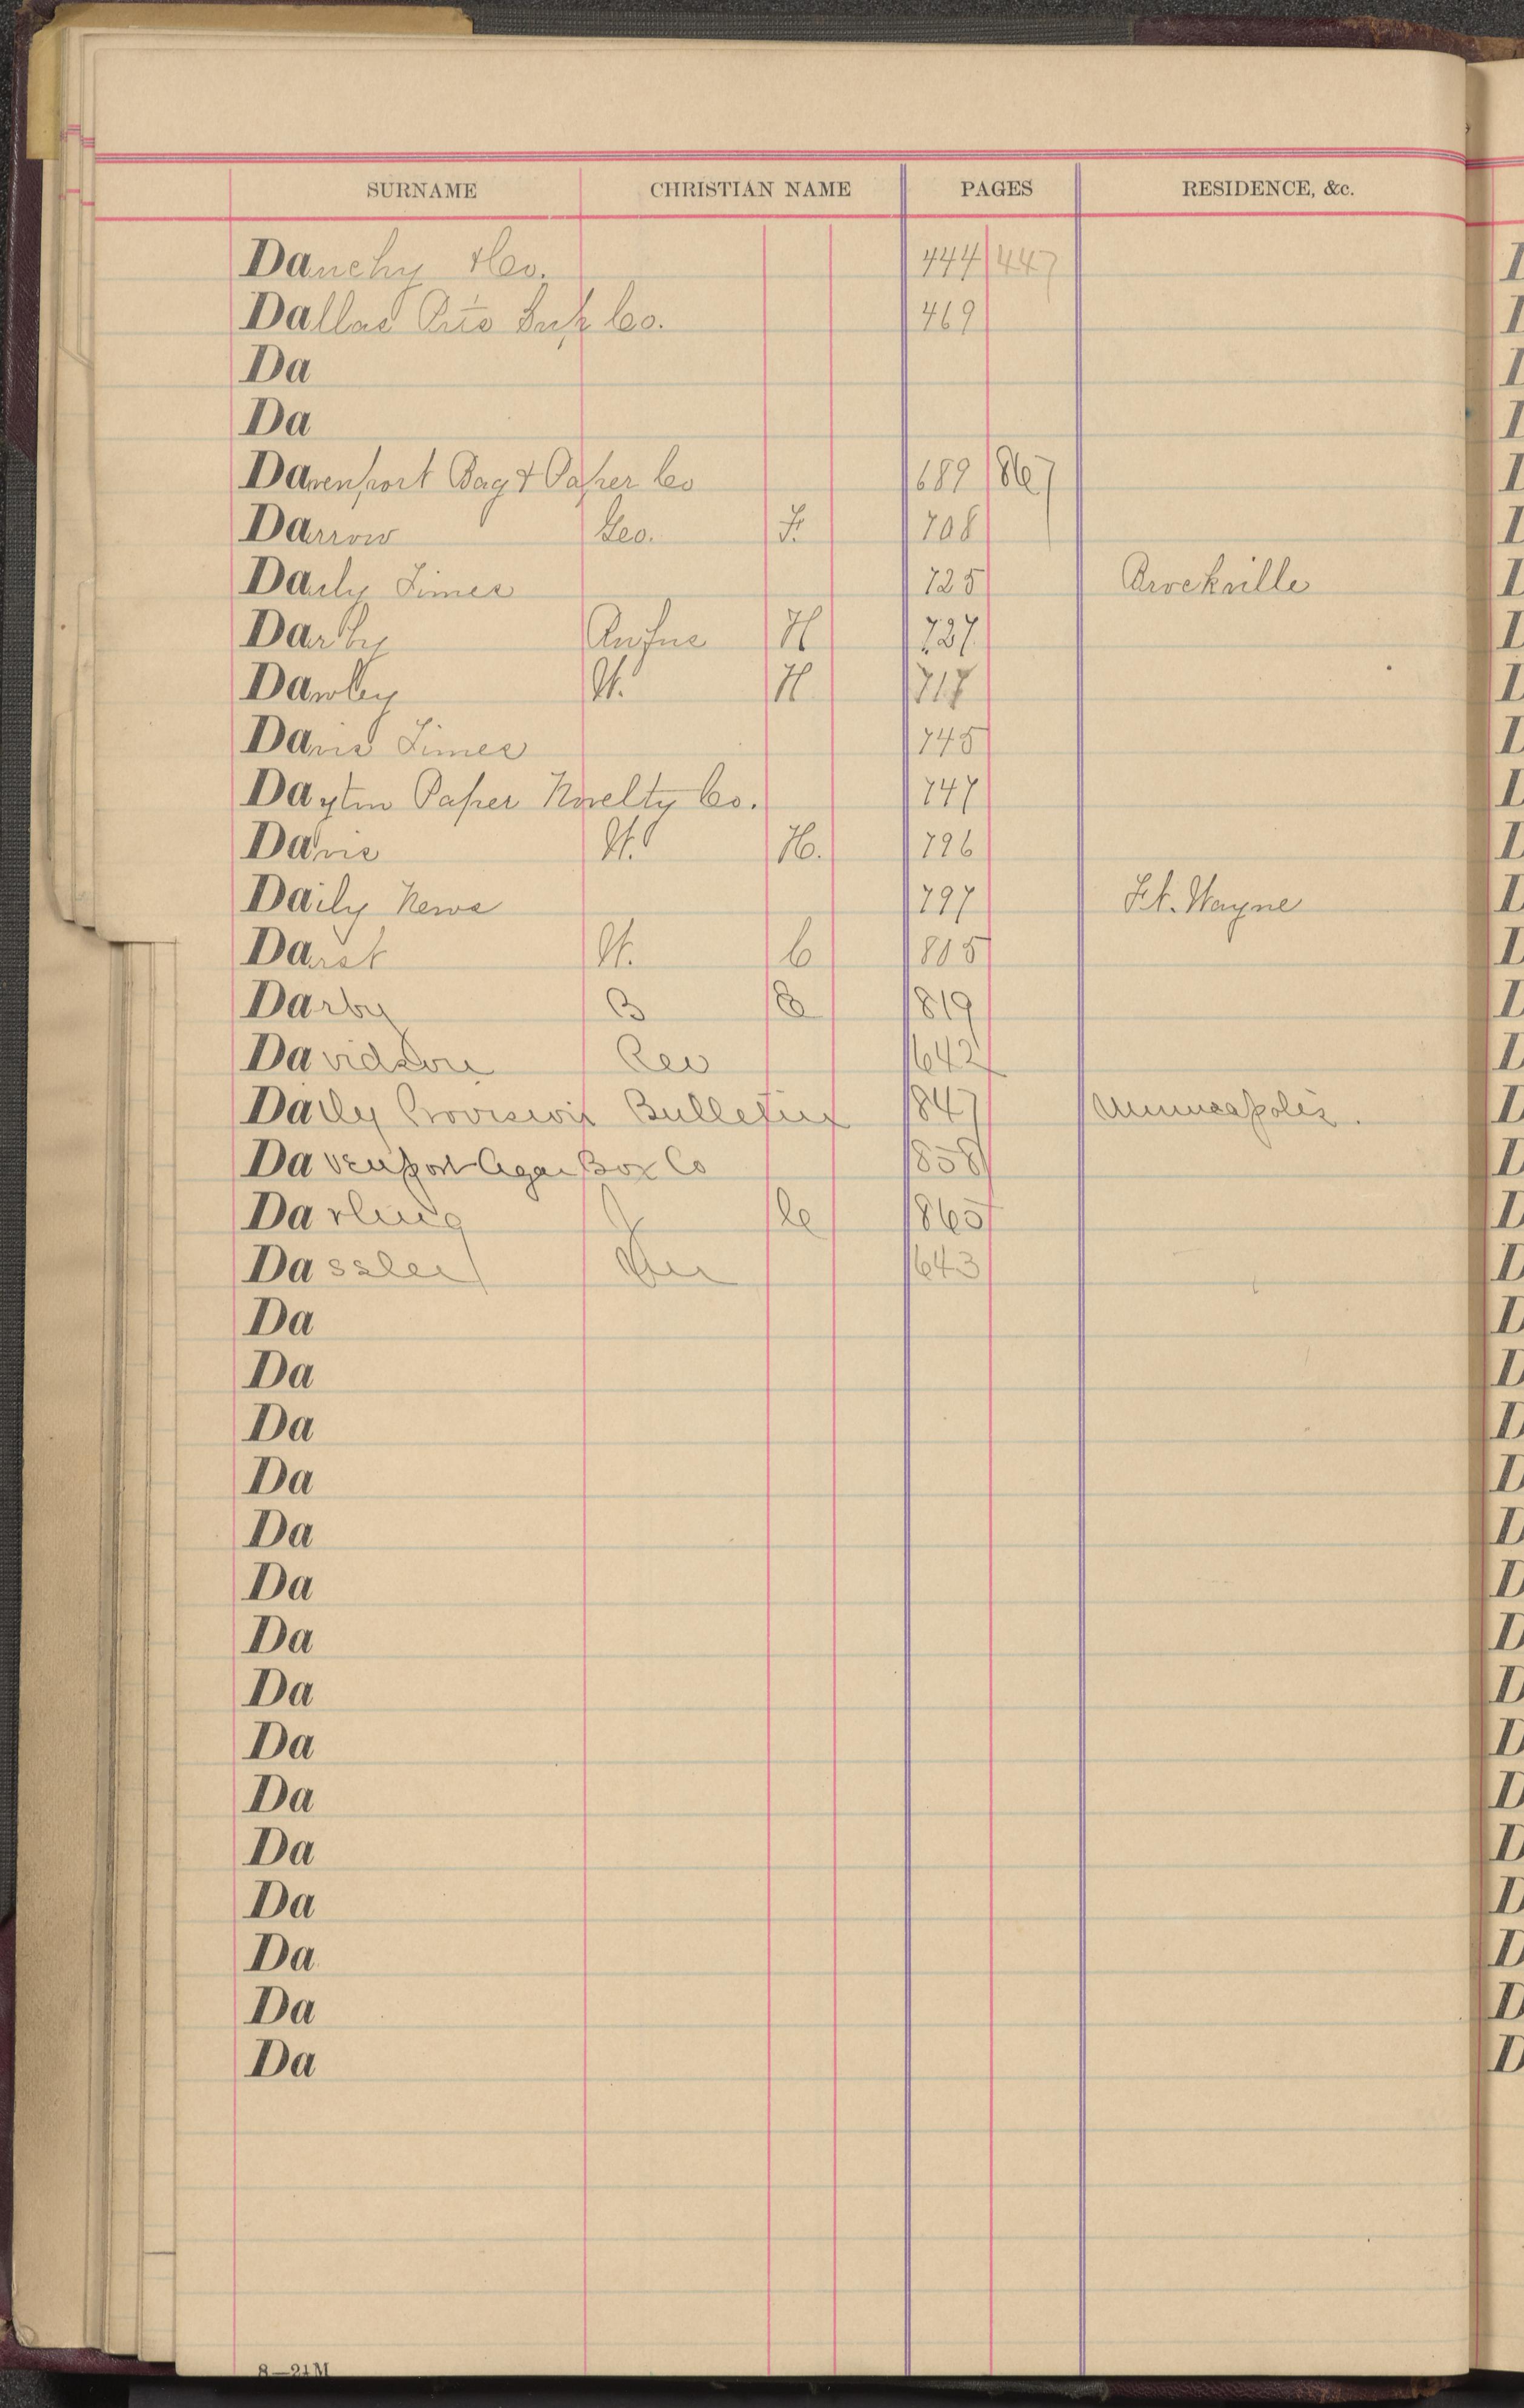 SURNAME CHRISTIAN NAME PAGES RESIDENCE, &c.
Dauchy & Co. 444 447
Dallas Co. 469
Da
Da
Davenport Bag & Paper Co 689 867
Darrow Geo. F. 708
Daily Times 725 Brockville
Darby Rufus H 727
Dawley W. H 717
Davis Times 745
Dayton Paper Novelty Co. 747
Davis W. H. 796
Daily News 797 Ft. Wayne
Darst W. C 805
Darby B E 819
Davidson Rev 642
Daily Provision Bulletin 847 Minneapolis.
Davenport Cigar Box Co 858
Darling J C 865
Dassler 643
Da
Da
Da
Da
Da
Da
Da
Da
Da
Da
Da
Da
Da
Da
Da
8—21M